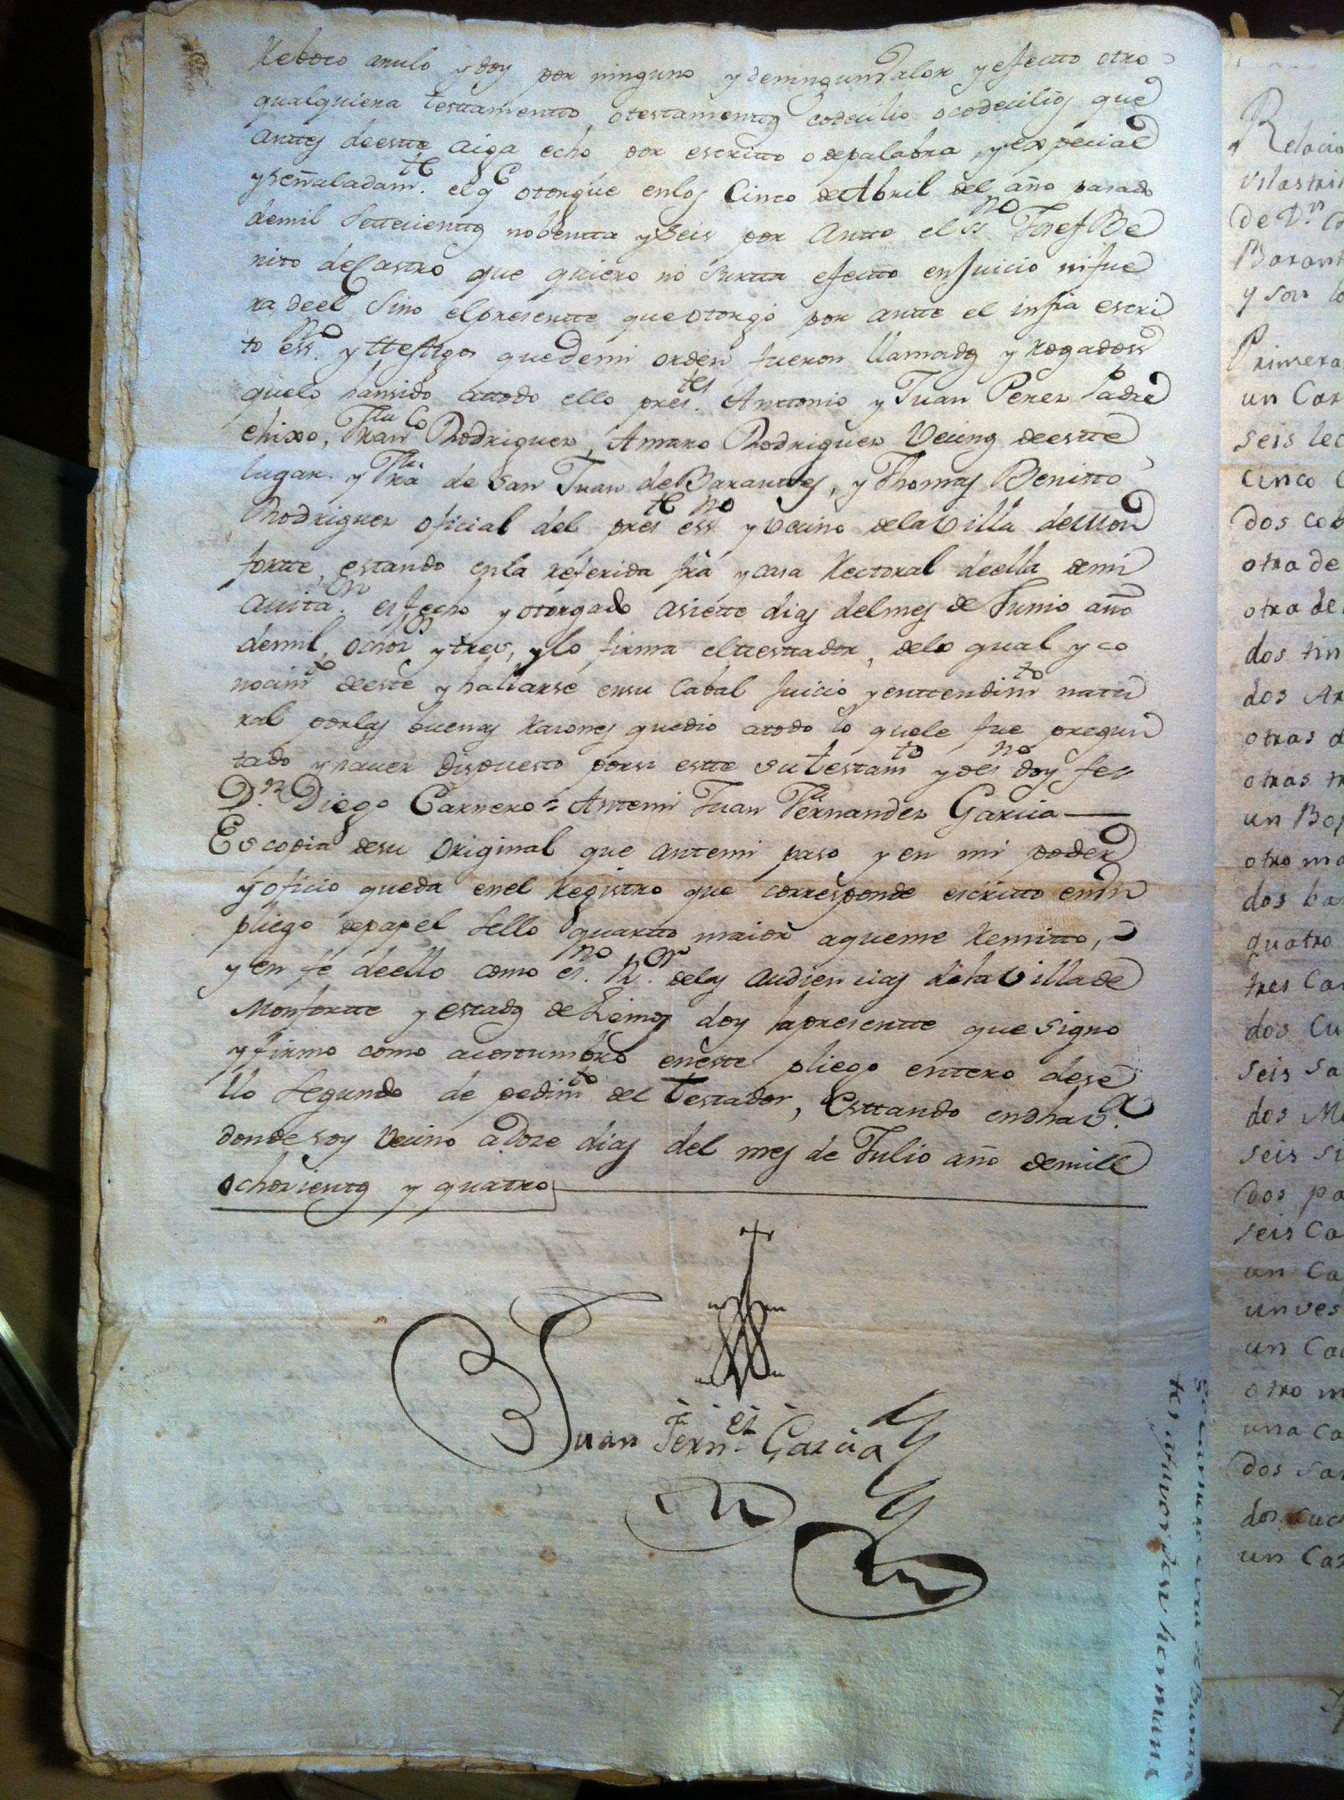 Reboco anulo y doy por ninguno y deningun valor y efecto otro
qualquiera testamentto, otestamenttos codecilio ocodecilios que
anttes deestte aiga echo por escritto o depalabra, y expecial
yseñaladamte. el qe otorgue enlos Cinco de Abril del año pasado
demil Settecienttos nobentta y seis por Antte el sno Josef Be
nito de Castro que quiero no surtta efectto enJuicio nifue
ra deel Sino elpresentte que otorgo por antte el infra escri
to essno. y ttestigos quedemi orden fueron llamados y Rogados
quelo hansido attodo ello prestes. Anttonio y Juan Perez Padre
ehixo, Franco Rodriguez, Amaro Rodriguez Vecinos deestte
lugar y fra de San Juan deBaranttes, y Thomas Benitto
Rodriguez oficial del preste essno y vecino dela Villa deMon
fortte, estando enla referida fra y casa Rectoral deella demi
avitaon. es fecho y otorgado asiette dias delmes de Junio año
demil, ochos ytres, ylo firma elttesttador, delo qual y co
nocimto deeste y hallarse ensu Cabal Juicio yenttendimto natu
ral porlas buenas Razones quedio atodo lo quele fue pregun
tado y haver dispuesto porsi estte su testamto yo esno doy fee
Dn Diego Carnero = Antemi Juan Fernandez Garcia
Es copia desu original que antemi paso y en mi poder
y oficio queda enel Registro que corresponde escritto enun
pliego depapel sello quartto maior aqueme Remitto,
y en fe deello como esno. Rr. delas Audiencias dela Villa de
Monfortte y estados de Lemos doy lapresentte que signo
y firmo como acostumbro eneste pliego entero dese
llo segundo de pedimto del testador, Esttando en
donde soy Vecino adoze dias del mes de Julio año demill
ochocientos y quatro
Juan Fernez. Garcia
Relacio
de Dn
Barant
y son
Primera
un Car
seis lec
cinco
dos cob
otra de
otra de
dos tin
dos Ar
otras d
otras tr
un
otro ma
dos ba
quatro
tres Ca
dos Cu
seis sa
dos Ma
seis
dos pa
seis Ca
un Ca
un ves
un Ca
otro m
una Ca
dos sa
dos cuc
un Ca
a favor desu hermana